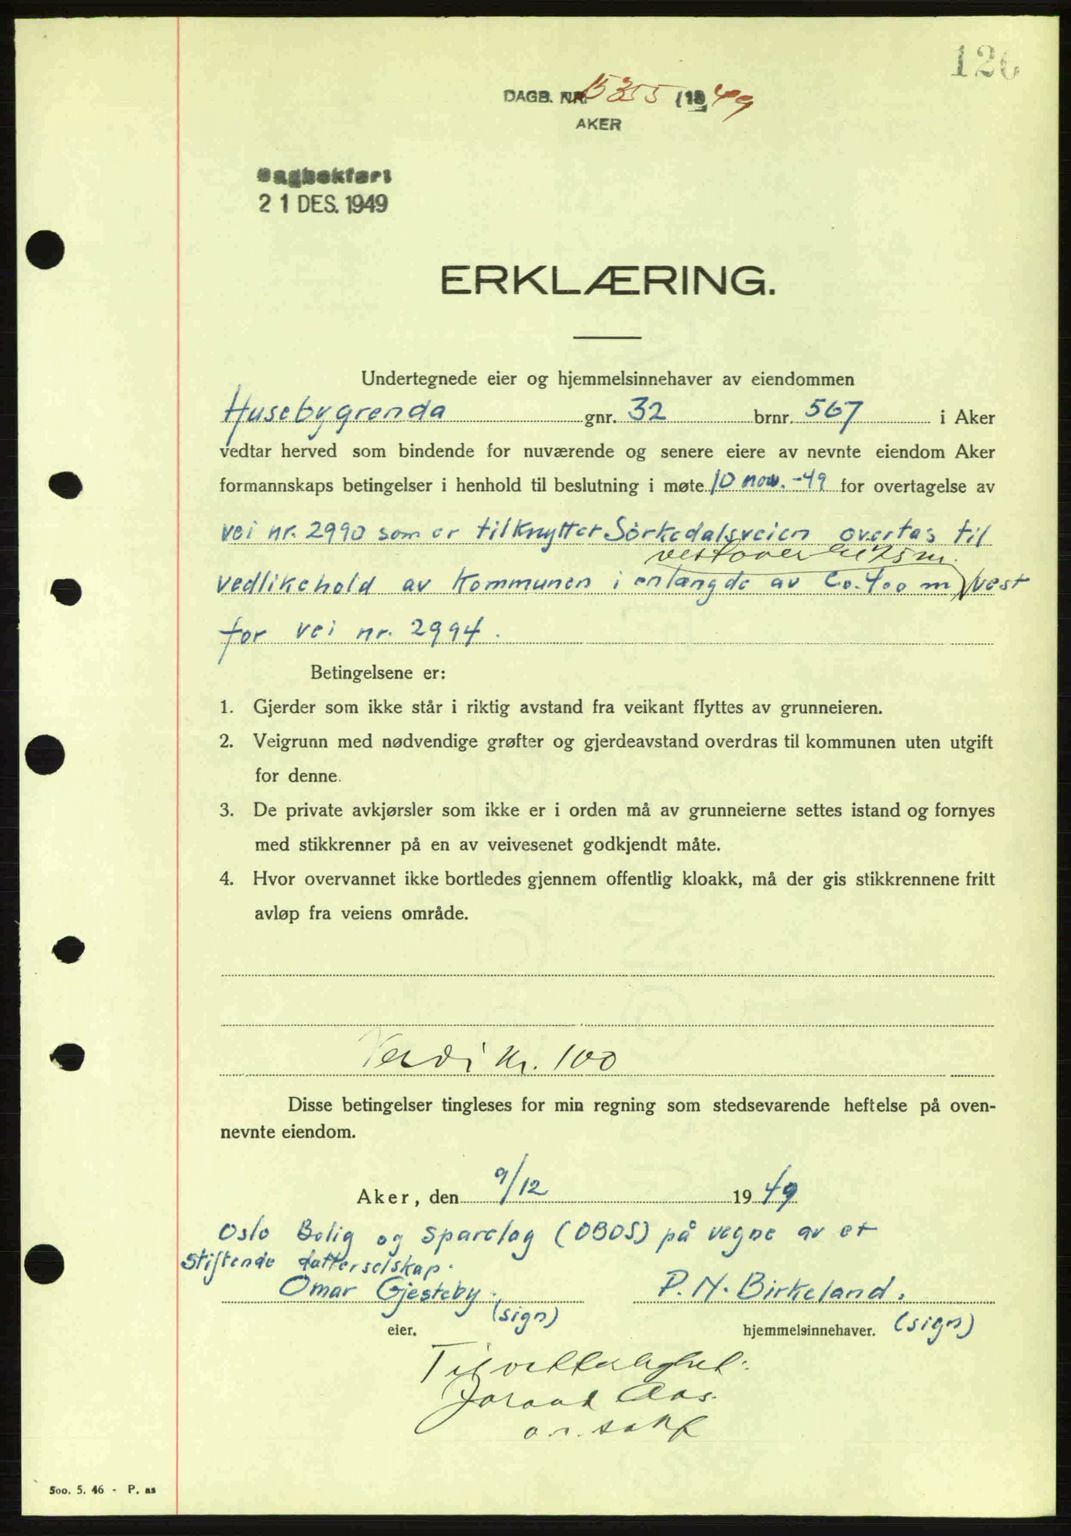 126
DAGB. NR. 15355 / 19 49
AKER
Dagbokført
21 DES. 1949
ERKLÆRING.
Undertegnede eier og hjemmelsinnehaver av eiendommen
Husebygrenda gnr. 32 brnr. 567 i Aker
vedtar herved som bindende for nuværende og senere eiere av nevnte eiendom Aker
formannskaps betingelser i henhold til beslutning i møte 10 nov. -49 for overtagelse av
vei nr. 2990 som er tilknyttet Sörkedalsveien overtas til
vestover
vedlikehold av Kommunen i en längde av Ca. 400 m vest
for vei nr. 2994.
Betingelsene er:
1. Gjerder som ikke står i riktig avstand fra veikant flyttes av grunneieren.
2. Veigrunn med nødvendige grøfter og gjerdeavstand overdras til kommunen uten utgift
for denne.
3. De private avkjørsler som ikke er i orden må av grunneierne settes istand og fornyes
med stikkrenner på en av veivesenet godkjendt måte.
4. Hvor overvannet ikke bortledes gjennem offentlig kloakk, må der gis stikkrennene fritt
avløp fra veiens område.
Verdi Kr. 100
Disse betingelser tingleses for min regning som stedsevarende heftelse på oven-
nevnte eiendom.
Aker, den 9/12 19 49
Oslo Bolig og Sparelag (OBOS) på vegne av et
Stiftende datterselskap.
Omar Gjesteby. P. N. Birkeland.
(sign) (sign)
eier. hjemmelsinnehaver.
Til vitterlighet:
Aas.
o.r. sakf
500. 5. 46 - P. as